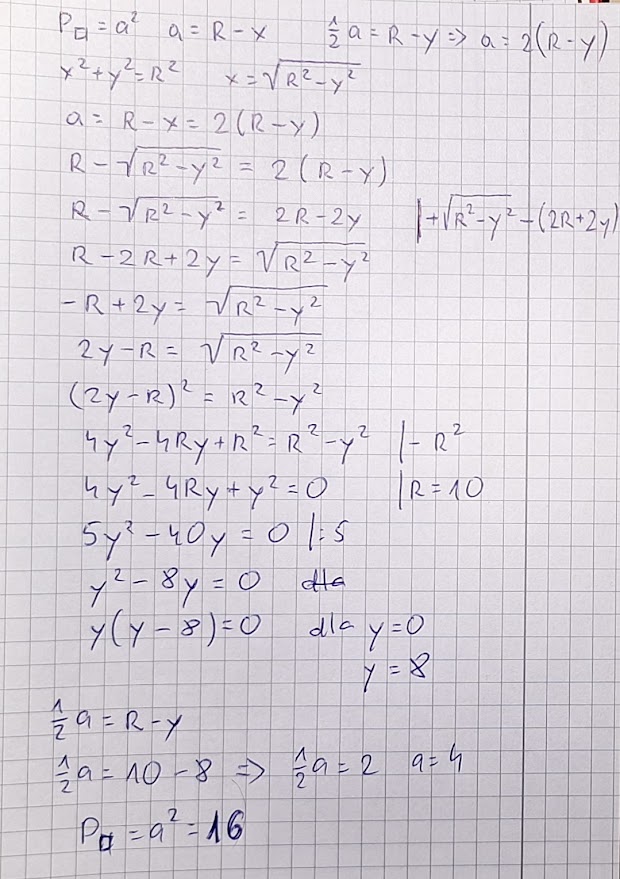 P□ = a² a = R - x ½a = R - y => a = 2(R - y)
x² + y² = R² x = √(R² - y²)
a = R - x = 2(R - y)
R - √(R² - y²) = 2(R - y)
R - √(R² - y²) = 2R - 2y |+√(R² - y²) - (2R + 2y)
R - 2R + 2y = √(R² - y²)
-R + 2y = √(R² - y²)
2y - R = √(R² - y²)
(2y - R)² = R² - y²
4y² - 4Ry + R² = R² - y² |- R²
4y² - 4Ry + y² = 0 |R = 10
5y² - 40y = 0 |:5
y² - 8y = 0 dla
y(y - 8) = 0 dla y = 0
y = 8
½a = R - y
½a = 10 - 8 => ½a = 2 a = 4
P□ = a² = 16